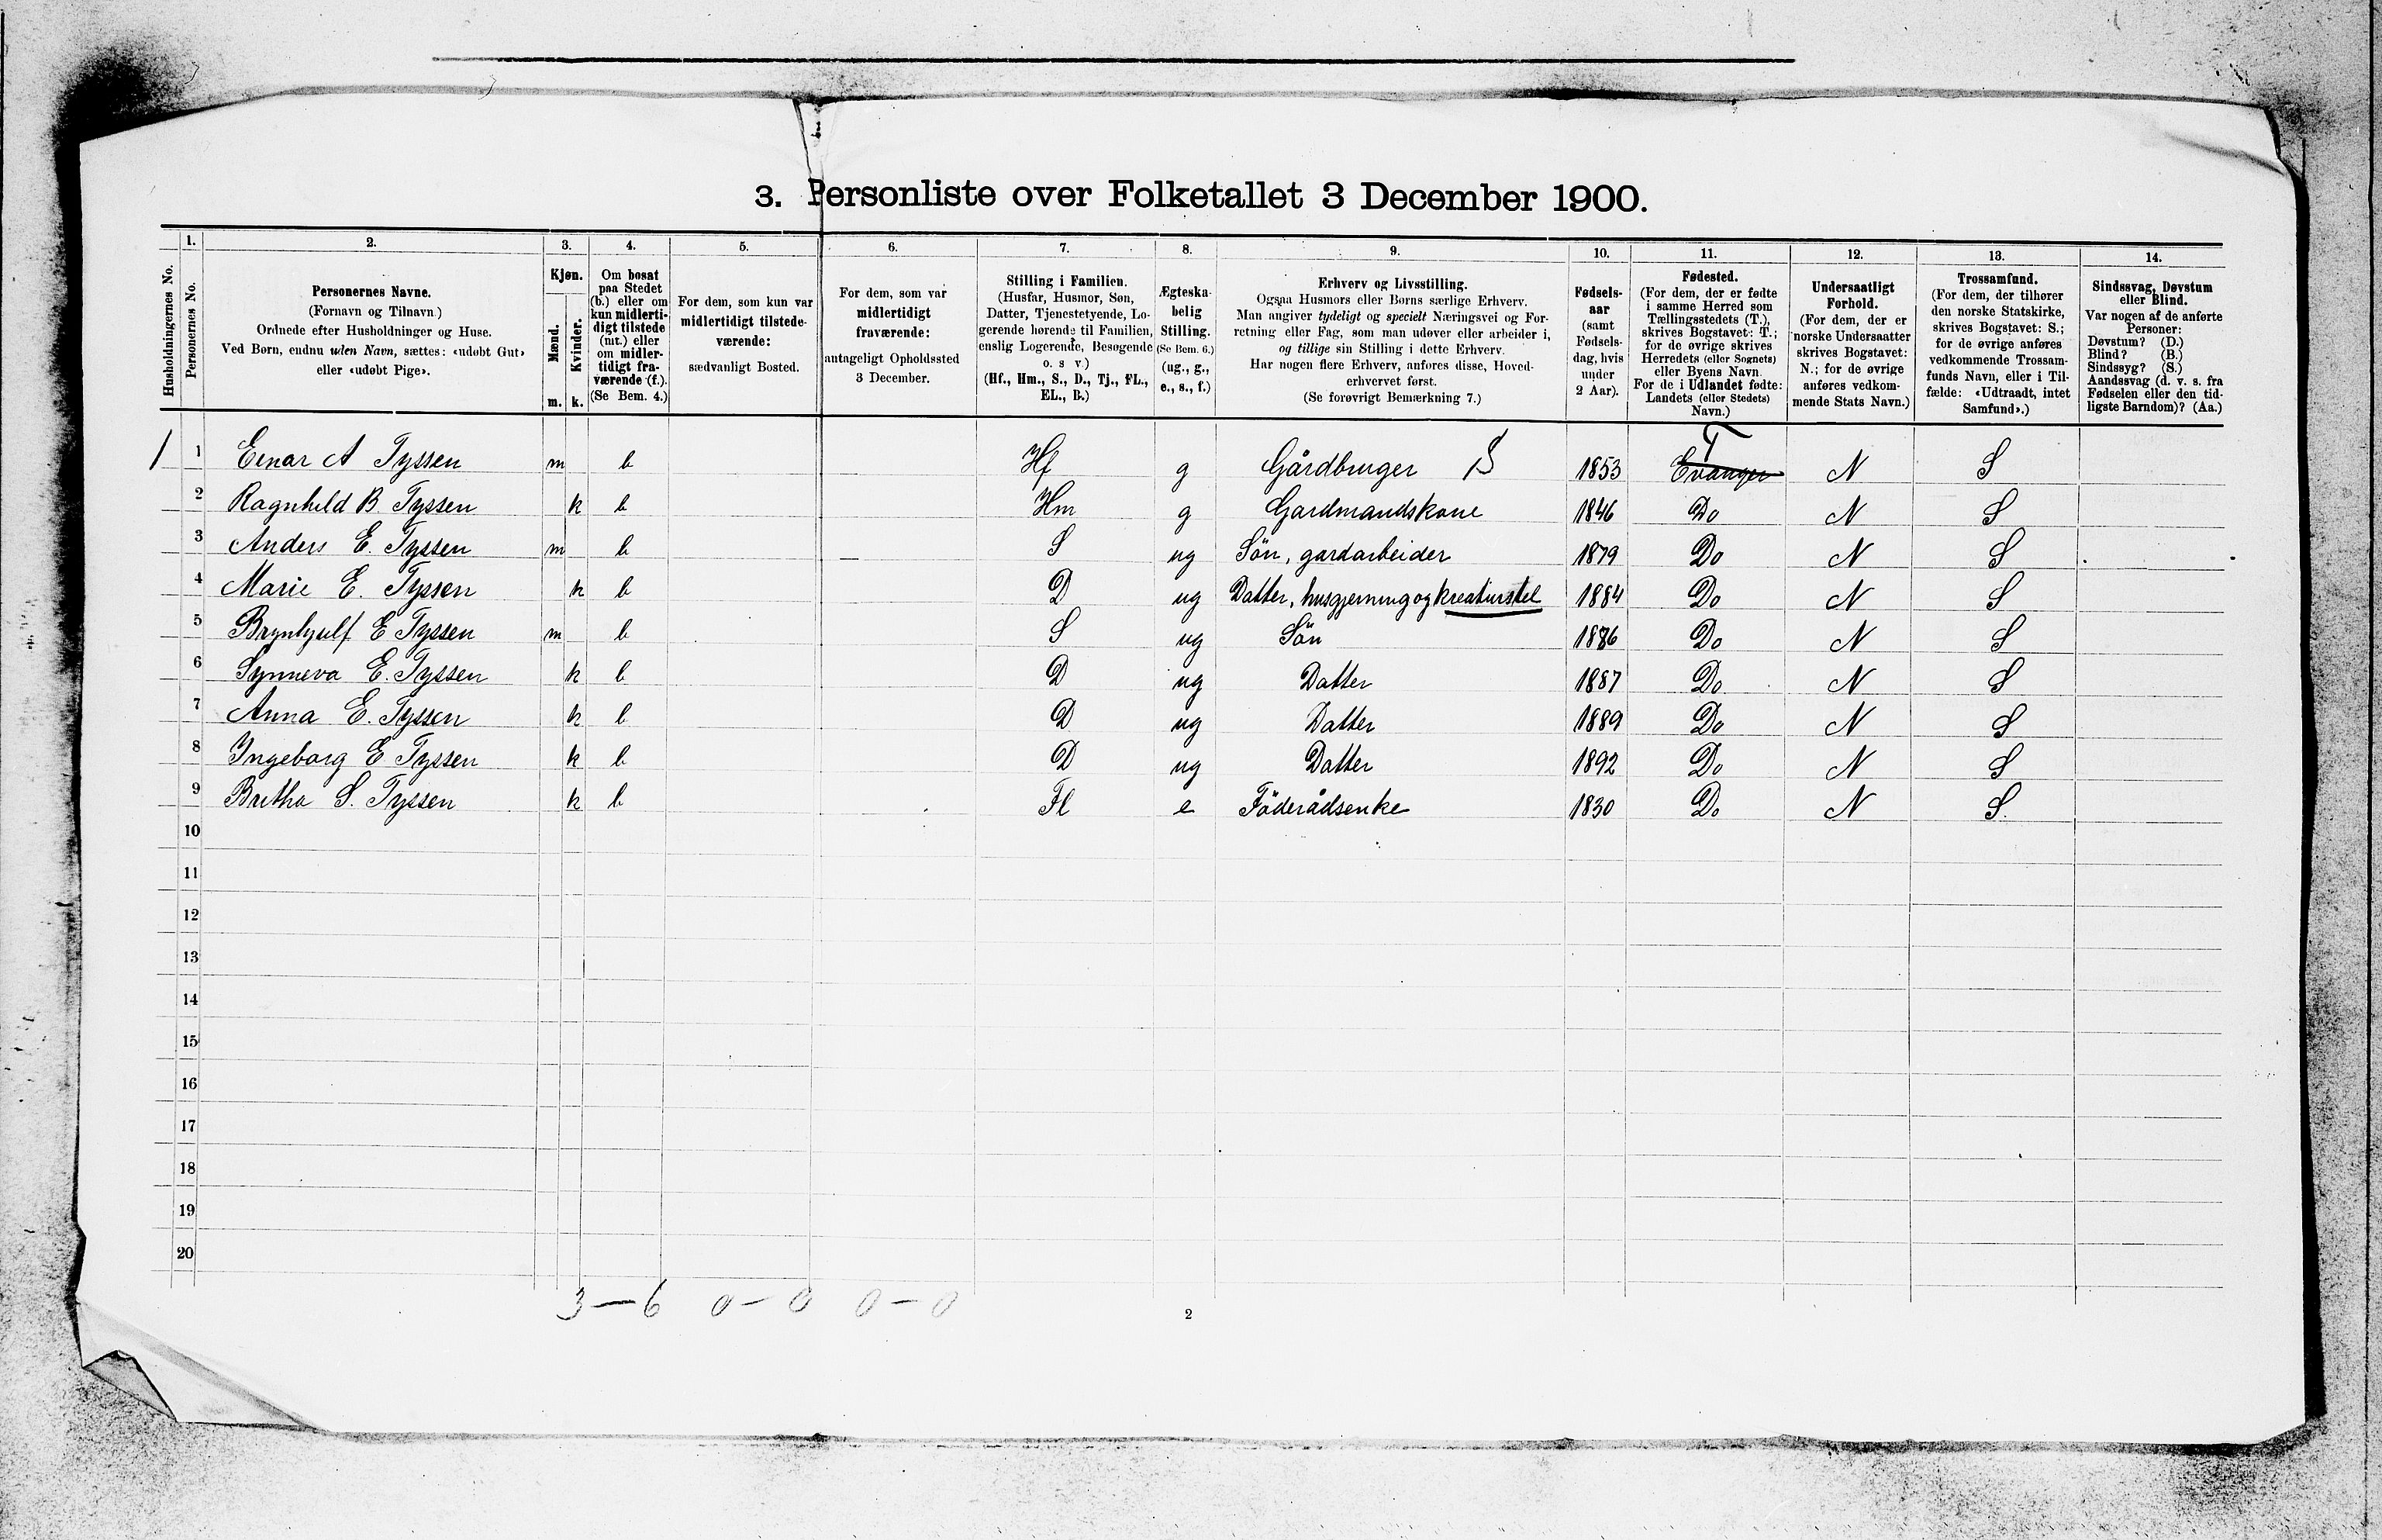 3. Personliste over Folketallet 3 December 1900.
1. 2. 3. 4. 5. 6. 7. 8. 9. 10. 11. 12. 13. 14.
Husholdningernes No.
Personernes No.
Personernes Navne.
(Fornavn og Tilnavn.)
Ordnede efter Husholdninger og Huse.
Ved Børn, endnu uden Navn, sættes: «udøbt Gut»
eller «udøbt Pige».
Kjøn.
Mænd.
Kvinder.
m. k.
Om bosat
paa Stedet
(b.) eller om
kun midlerti-
digt tilstede
(mt.) eller
om midler-
tidigt fra-
værende (f.).
(Se Bem. 4.)
For dem, som kun var
midlertidigt tilstede-
værende:
sædvanligt Bosted.
For dem, som var
midlertidigt
fraværende:
antageligt Opholdssted
3 December.
Stilling i Familien.
(Husfar, Husmor, Søn,
Datter, Tjenestetyende, Lo-
gerende hørende til Familien,
enslig Logerende, Besøgende
o. s v.)
(Hf., Hm., S., D., Tj., FL.,
EL., B.)
Ægteska-
belig
Stilling.
(Se Bem. 6.)
(ug., g.,
e., s., f.)
Erhverv og Livsstilling.
Ogsaa Husmors eller Børns særlige Erhverv.
Man angiver tydeligt og specielt Næringsvei og For-
retning eller Fag, som man udøver eller arbeider i,
og tillige sin Stilling i dette Erhverv.
Har nogen flere Erhverv, anføres disse, Hoved-
erhvervet først.
(Se forøvrigt Bemærkning 7.)
Fødsels-
aar
(samt
Fødsels-
dag, hvis
under
2 Aar).
Fødested.
(For dem, der er fødte
i samme Herred som
Tællingsstedets (T.),
skrives Bogstavet: T.;
for de øvrige skrives
Herredets (eller Sognets)
eller Byens Navn.
For de i Udlandet fødte:
Landets (eller Stedets)
Navn.)
Undersaatligt
Forhold.
(For dem, der er
norske Undersaatter
skrives Bogstavet:
N.; for de øvrige
anføres vedkom-
mende Stats Navn.)
Trossamfund.
(For dem, der tilhører
den norske Statskirke,
skrives Bogstavet: S.;
for de øvrige anføres
vedkommende Trossam-
funds Navn, eller i Til-
fælde: «Udtraadt, intet
Samfund».)
Sindssvag, Døvstum
eller Blind.
Var nogen af de anførte
Personer:
Døvstum? (D.)
Blind? (B.)
Sindssyg? (S.)
Aandssvag (d. v. s. fra
Fødselen eller den tid-
ligste Barndom)? (Aa.)
T
1 1 Einar A Tyssen m b Hf g Gårdbruger 1853 Evanger N S
2 Ragnhild B. Tyssen k b Hm g Gardmandskone 1846 Do N S
3 Anders E. Tyssen m b S ug Sön, gardarbeider 1879 Do N S
4 Marie E. Tyssen k b D ug Datter, husgjerning og kreaturstel 1884 Do N S
5 Brynhjulf E Tyssen m b S ug Sön 1886 Do N S
6 Synneva E. Tyssen k b D ug Datter 1887 Do N S
7 Anna E. Tyssen k b D ug Datter 1889 Do N S
8 Ingeborg E Tyssen k b D ug Datter 1892 Do N S
9 Britha S. Tyssen k b Fl e Föderådsenke 1830 Do N S.
10
11
12
13
14
15
16
17
18
19
20
3 — 6 0 — 0 0 — 0
2